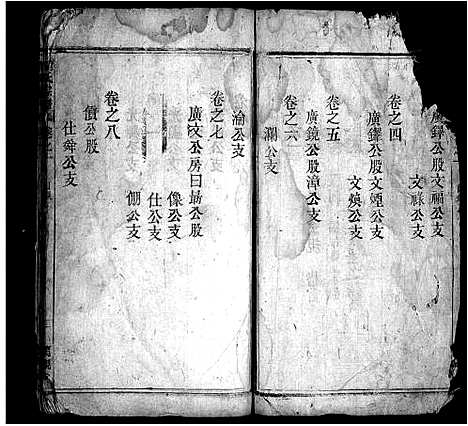 廣鐸公股文福公支
文祿公支
卷之四
廣鐸公股文煙公支
文煥公支
卷之五
廣鏡公股漳公支
卷之六
瀾公支
瀹公支
卷之七
廣文公房曰勗公股
像公支
仕公支
倗公支
卷之八
價公股
仕舜公支